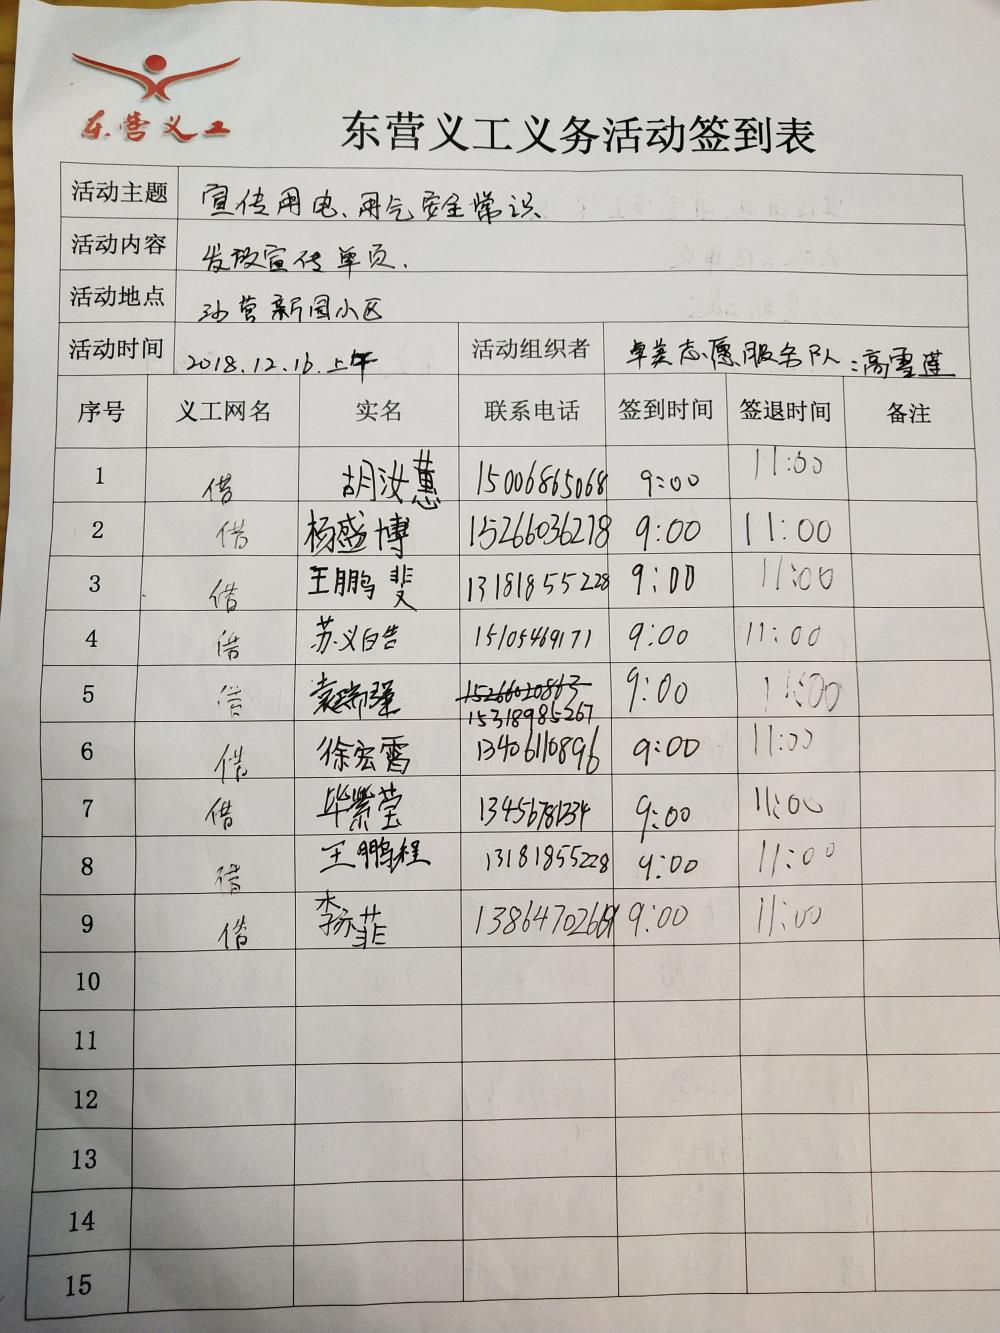 东营义工
东营义工义务活动签到表
活动主题 宣传用电、用气安全常识
活动内容 发放宣传单页.
活动地点 孙营新园小区
活动时间 2018.12.16.上午 活动组织者 卓美志愿服务队:高雪莲
序号 义工网名 实名 联系电话 签到时间 签退时间 备注
1 借 胡汝蕙 15006865068 9:00 11:00
2 借 杨盛博 15266036278 9:00 11:00
3 借 王鹏斐 13181855228 9:00 11:00
4 借 苏义白告 15105469171 9:00 11:00
5 借 袁瑞强 15266020863 9:00 11:00
15318985267
6 借 徐宏霄 13406110896 9:00 11:00
7 借 毕紫莹 13456781234 9:00 11:00
8 借 王鹏程 13181855228 9:00 11:00
9 借 菲 9:00 11:00
10
11
12
13
14
15